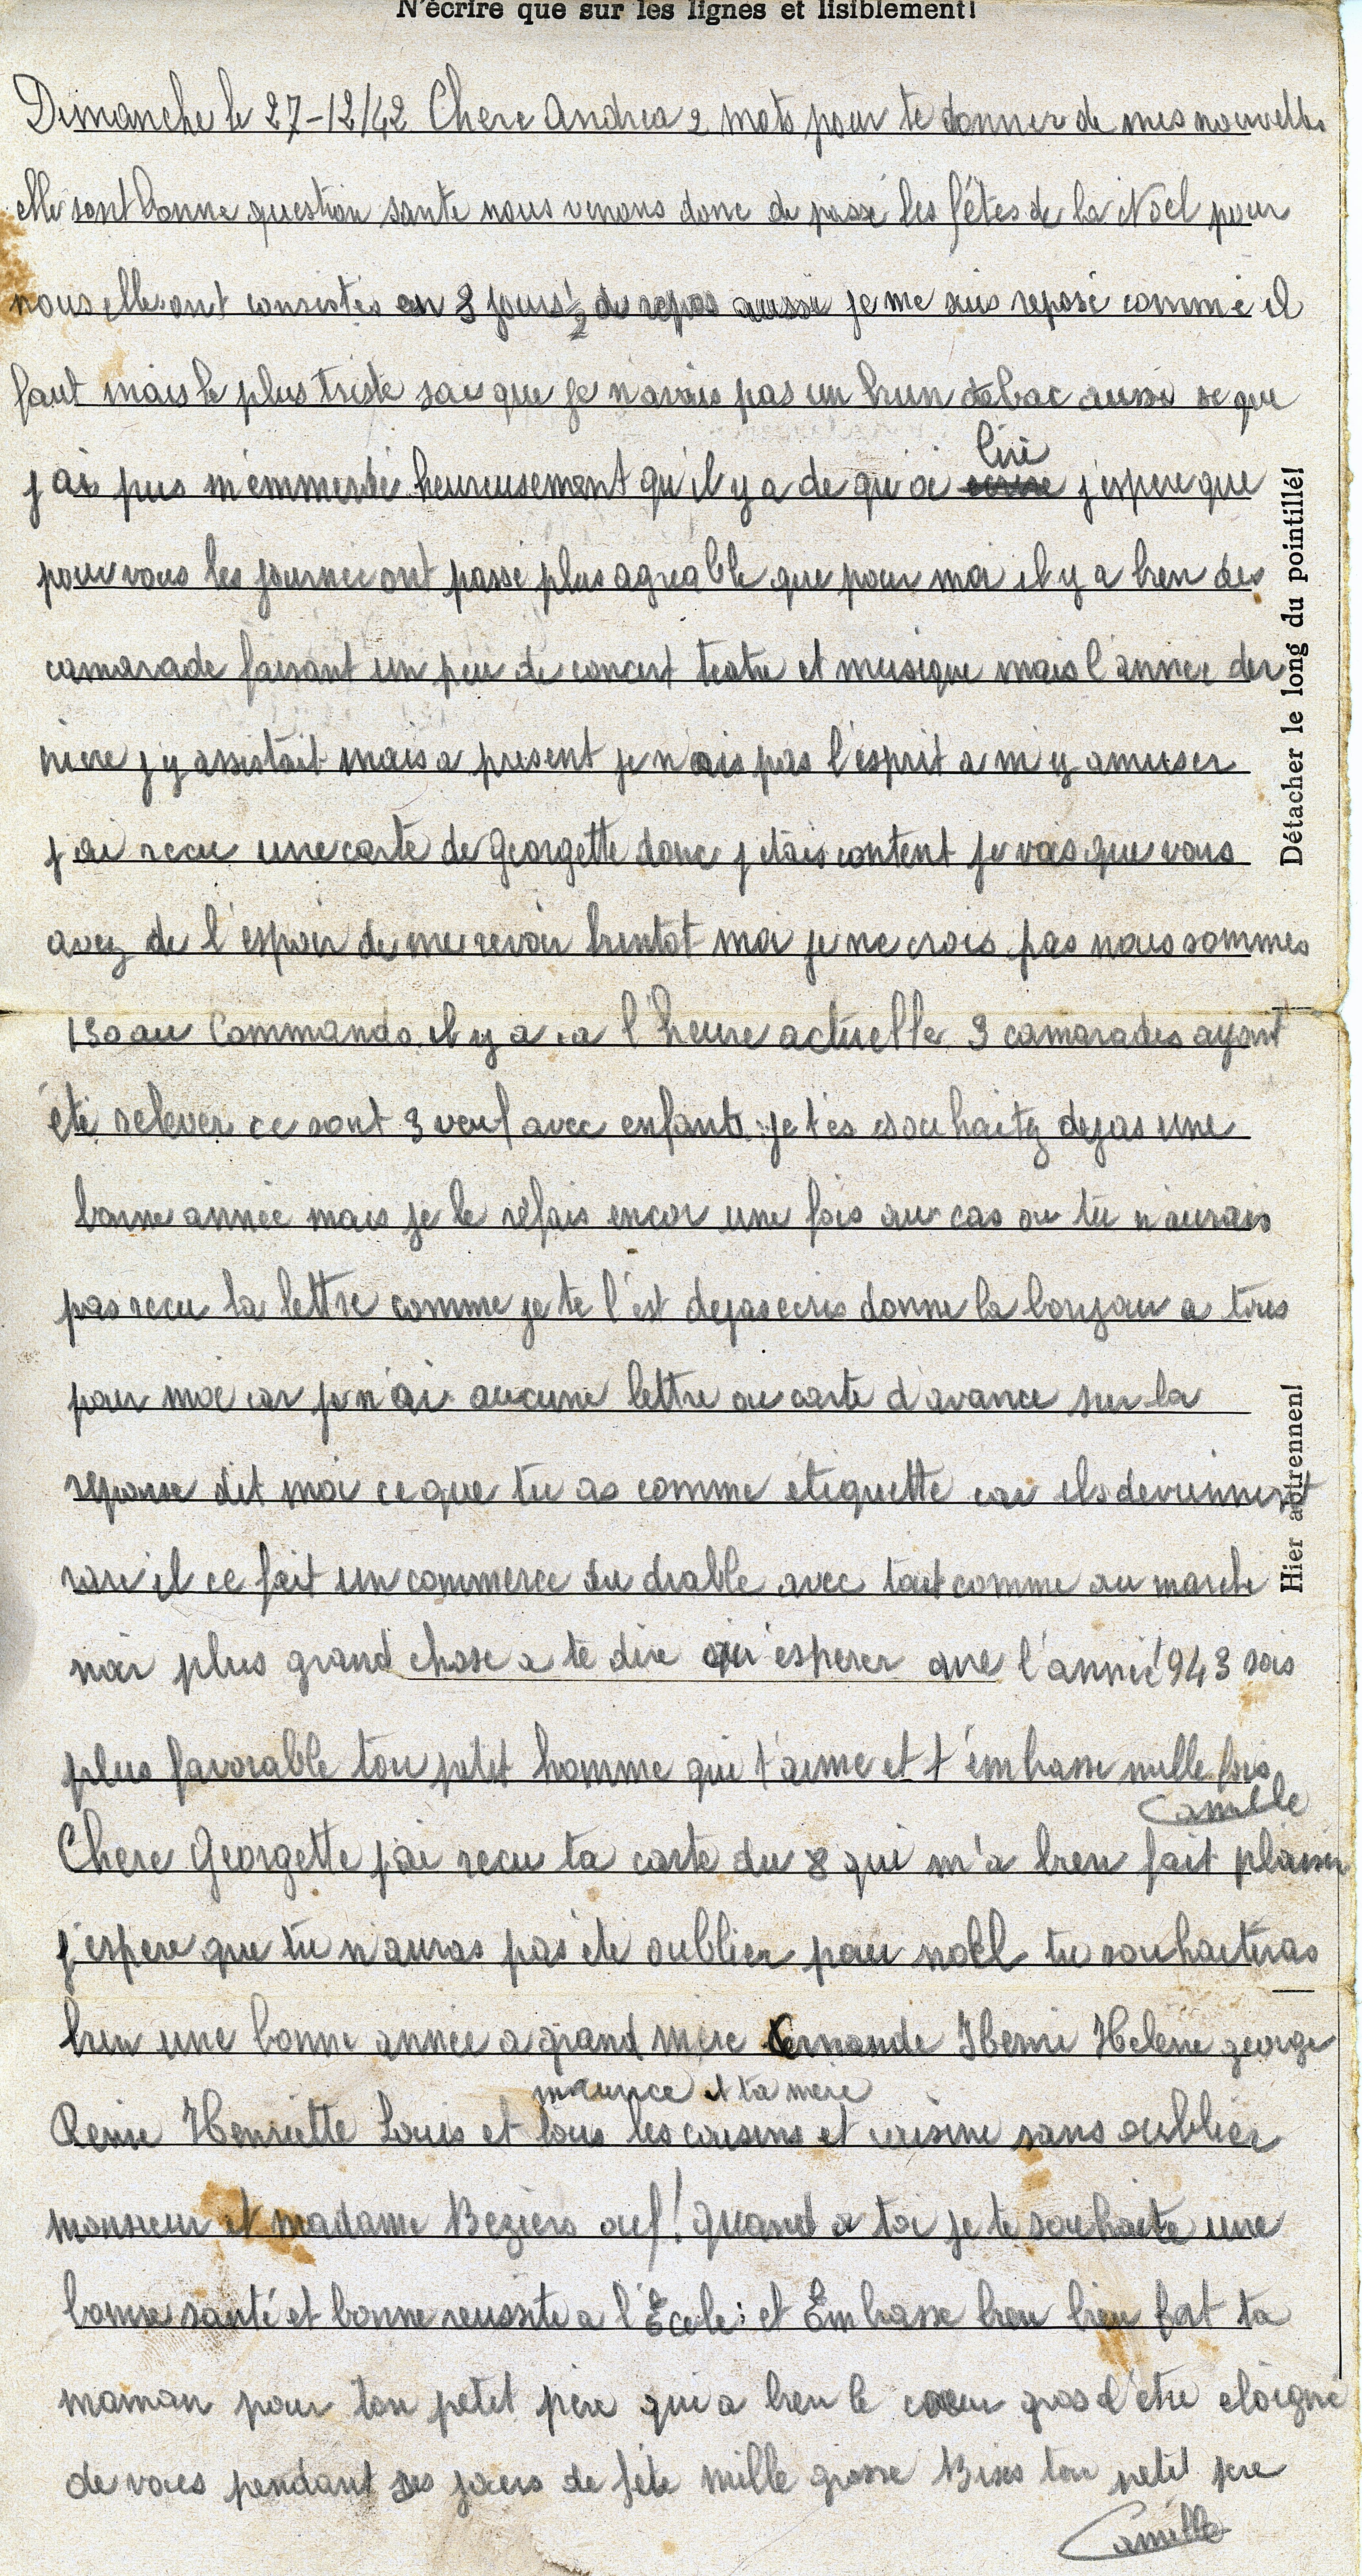 N'écrire que sur les lignes et lisiblement!
Dimanche le 27-12/42 Chere Andrea 2 mots pour te donner de mes nouvelles
elle sont bonne question sante nous venons donc de passé les fêtes de la Noël pour
nous elles ont consistés en 3 jours 1/2 de repos aussi je me suis reposé comme il
faut mais le plus triste sais que je n'avais pas un brun tabac aussi se que
j'ai pus m'emmerdé heureusement qu'il y a de qu'oi lire j'espere que
pour vous les journée ont passé plus agreable que pour moi il y a bien des
camarade faisant un peu de concert teatre et musique mais l'année der
niere j'y assistait mais a present je n'ais pas l'esprit a m'y amuser
j'ai recu une carte de Georgette donc j'étais content je vois que vous
avez de l'espoir de me revoir bientot moi je ne crois pas nous sommes
130 au Commando il y a a l'heure actuelle 3 camarades ayant
été relever ce sont 3 veuf avec enfants je t'es souhaitez dejas une
bonne année mais je le refais encor une fois au cas ou tu n'aurais
pas recu la lettre comme je te l'est dejas ecris donne la bonjour a tous
pour moi car je n'ai aucune lettre ou carte d'avance sur la
reponse dit moi ce que tu as comme etiquette car ils deviennent
rare il ce fait un commerce du diable avec tout comme au marche
noir plus grand chose a te dire qu'esperer que l'anné 1943 sois
plus favorable ton petit homme qui t'aime et t'embrasse mille fois
Camille
Chere Georgette j'ai recu ta carte du 8 qui m'a bien fait plaisir
j'espere que tu n'auras pas été oublier pour noël tu souhaiteras
bien une bonne année a grand mère Fernande Henri Helene george
maurice et ta mere
Reine Henriette Louis et tous les cousins et cousine sans oublier
monsieur et madame Beziers ouf! quand a toi je te souhaite une
bonne santé et bonne reussite a l'École: et Embrasse bien bien fort ta
maman pour ton petit père qui a bien le coeur gros d'etre eloigné
de vous pendant ses jours de fête mille grosse Bises ton petit pere
Camille
Détacher le long du pointillé!
Hier abtrennen!